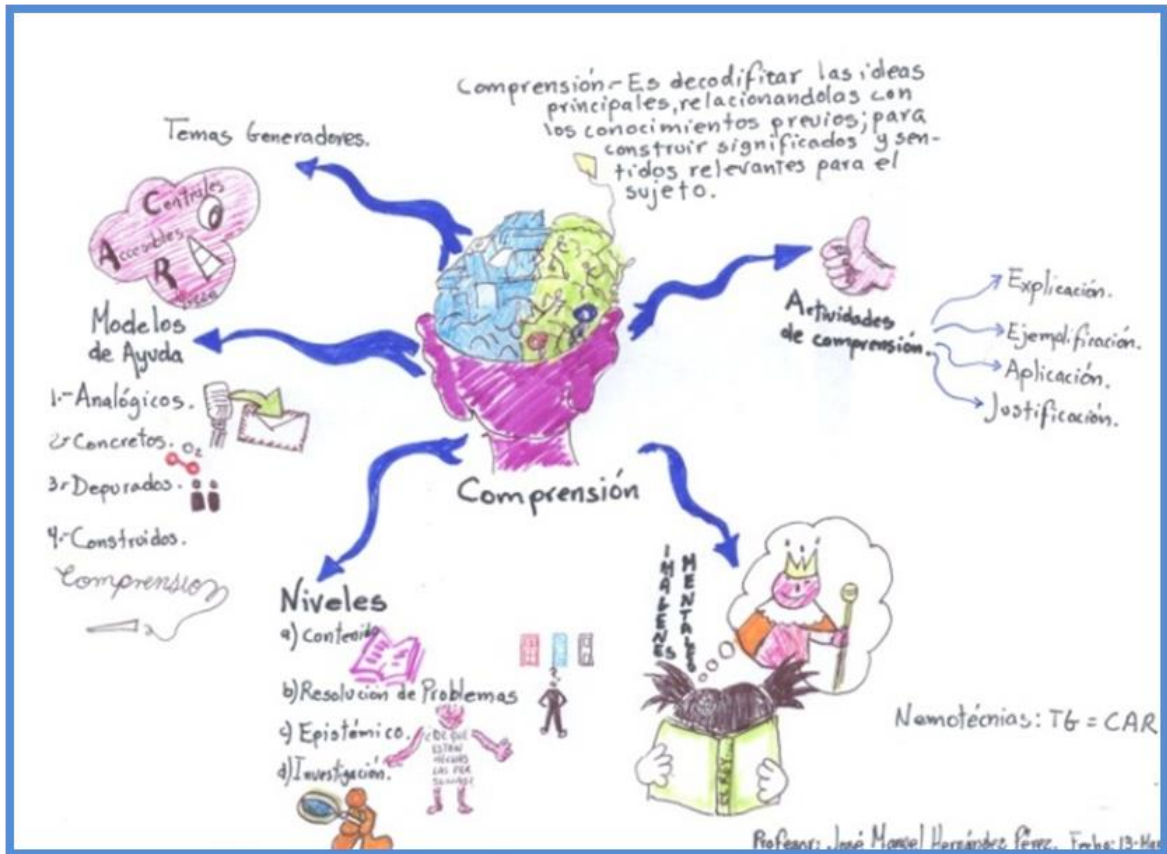 Comprensión.- Es decodifitar las ideas
principales, relacionandolas con
los conocimientos previos; para
construir significados y sen-
tidos relevantes para el
sujeto.
Temas Generadores.
Centrales
Accesibles
R
Modelos
de Ayuda
1.- Analógicos.
2.- Concretos.
O2
3.- Depurados.
4.- Construidos.
Comprension
Actividades
de comprensión.
Explicación.
Ejemplificación.
Aplicación.
Justificación.
Comprensión
Niveles
a) Contenido
b) Resolución de Problemas
c) Epistémico.
d) Investigación.
¿DE QUE
ESTAN
HECHAS
LAS PER
SONAS?
IMAGENES
MENTALES
EL REY
Nemotécnias: TG = CAR
Profesor: José Manuel Hernández Pérez. Fecha: 13-Mar